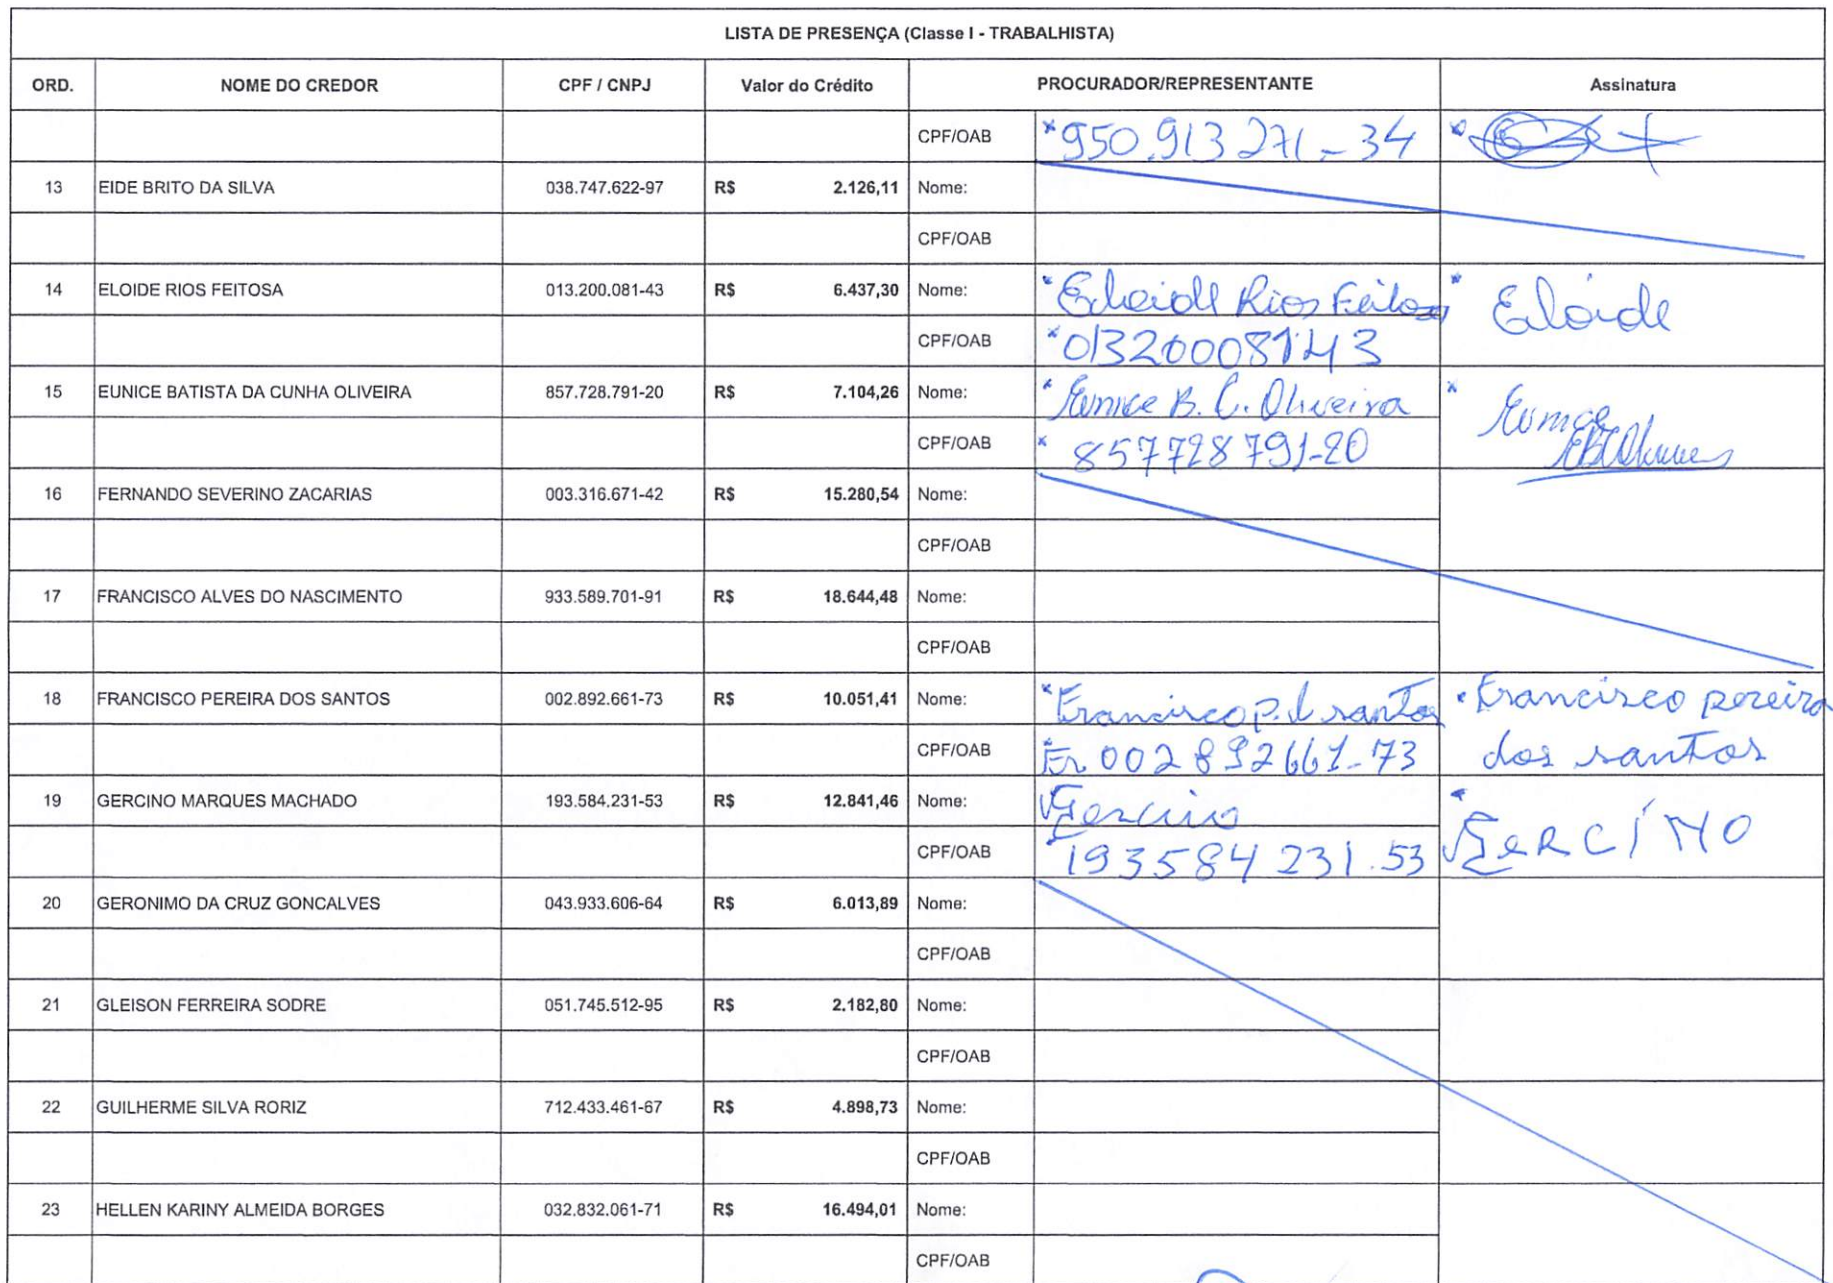 LISTA DE PRESENÇA (Classe I - TRABALHISTA)
ORD. NOME DO CREDOR CPF / CNPJ Valor do Crédito PROCURADOR/REPRESENTANTE Assinatura
CPF/OAB *950.913271-34
13 EIDE BRITO DA SILVA 038.747.622-97 R$ 2.126,11 Nome:
CPF/OAB
14 ELOIDE RIOS FEITOSA 013.200.081-43 R$ 6.437,30 Nome: *Eloide Rios Feitosa * Eloide
CPF/OAB *01320008143
15 EUNICE BATISTA DA CUNHA OLIVEIRA 857.728.791-20 R$ 7.104,26 Nome: *Eunice B. C. Oliveira * Eunice
CPF/OAB * 857728791-20
16 FERNANDO SEVERINO ZACARIAS 003.316.671-42 R$ 15.280,54 Nome:
CPF/OAB
17 FRANCISCO ALVES DO NASCIMENTO 933.589.701-91 R$ 18.644,48 Nome:
CPF/OAB
18 FRANCISCO PEREIRA DOS SANTOS 002.892.661-73 R$ 10.051,41 Nome: *Francisco p. d santos *Francisco pereira
CPF/OAB *Fr 002892661-73 dos santos
19 GERCINO MARQUES MACHADO 193.584.231-53 R$ 12.841,46 Nome: Gercino * GERCÍNO
CPF/OAB *193584231.53
20 GERONIMO DA CRUZ GONCALVES 043.933.606-64 R$ 6.013,89 Nome:
CPF/OAB
21 GLEISON FERREIRA SODRE 051.745.512-95 R$ 2.182,80 Nome:
CPF/OAB
22 GUILHERME SILVA RORIZ 712.433.461-67 R$ 4.898,73 Nome:
CPF/OAB
23 HELLEN KARINY ALMEIDA BORGES 032.832.061-71 R$ 16.494,01 Nome:
CPF/OAB